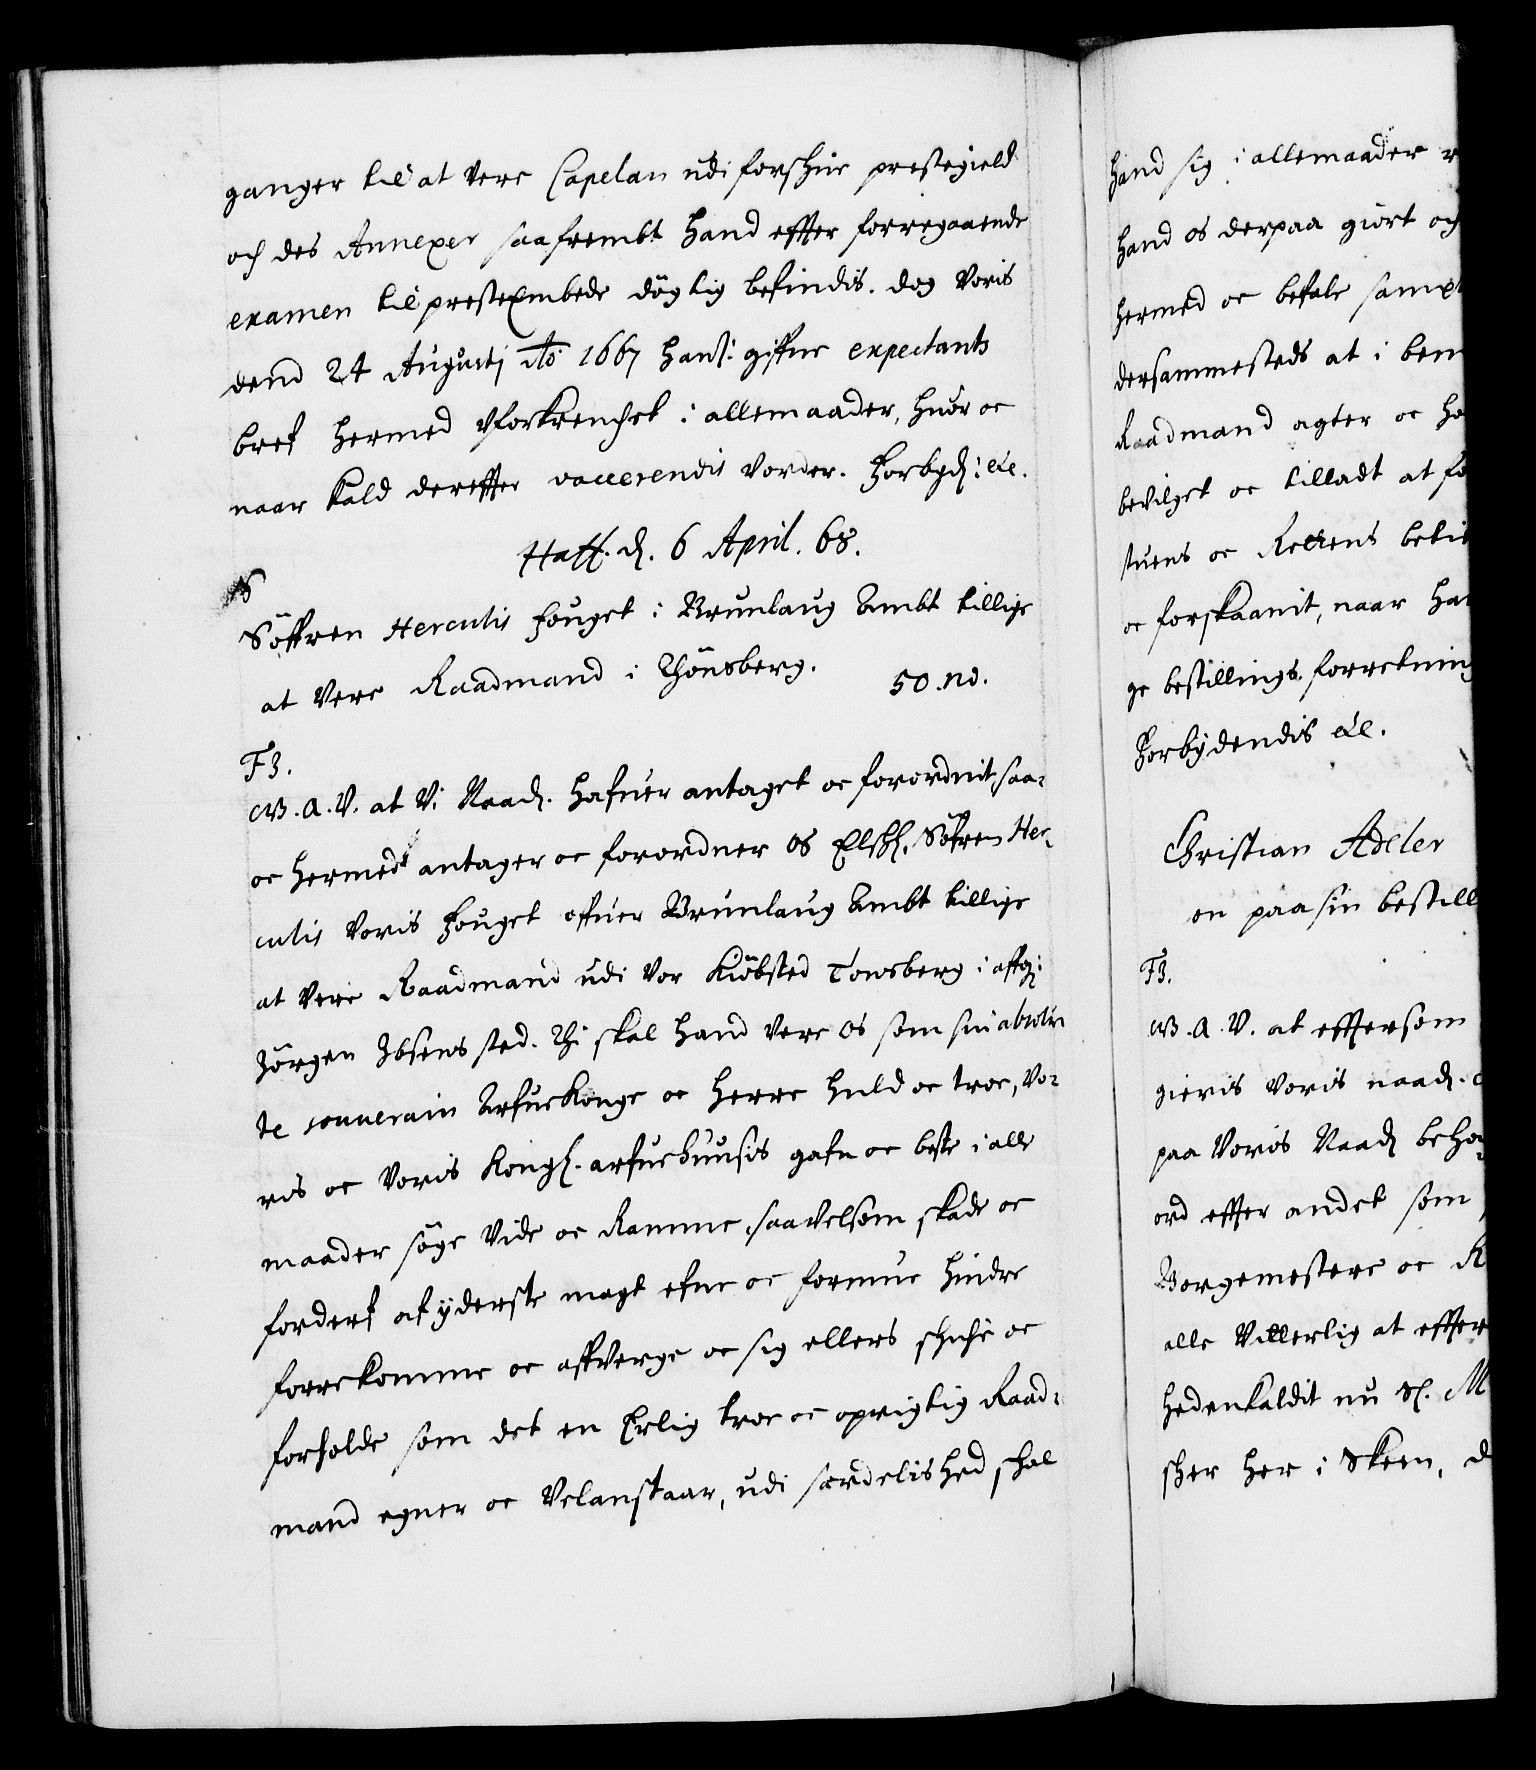 ganger til at vere Capelan udi forschre prestegield
och des Annexer saafrembt hand effter forregaaende
examen til presteEmbede dögtig befindis. dog voris
dend 24 Augustj Ao 1667 hans: gifne expectants
bref hermed uforkrenchet i allemaader, huor oc
naar kald dereffter vaccerendis vorder. Forbydh: etc.
Haff. d. 6 April. 68.
Söffren Herculis fouget i Brunlaug Ambt tillige
at vere Raadmand i Thönsberg.
50. no.
F3.
G. A. V. at Vi Naadh. hafuer antaget oc forordnit, saa-
oc hermed antager oc forordner os Elschl. Söfren Her-
culis voris fouget ofuer Brunlaug Ambt tillige
at vere Raadmand udi vor Kiöbsted Tonsberg i affg:
Jörgen Ibsens sted. Thi skal hand vere os som sin absolu-
te souverain Arfue Konge oc Herre huld oc troe, vo-
ris oc voris Kongl. arfuehuusis gafn oc beste i alle
maader söge vide oc Ramme, saavelsom skade oc
forderf af yderste magt efne oc formue hindre
forrekomme oc affverge oc sig ellers schiche oc
forholde som det en Erlig troe oc oprigtig Raad-
mand egner oc velanstaar, udi særdelished schal
hand sig i allemaader
hand os derpaa giort og
hermed oc befale sampt
dersammesteds at i bem
Raadmand agter oc ho
bevilget oc tilladt at
stuens oc Rettens beti
oc forskaanit, naar ha
ge bestillings forretning
Forbydendis etc.
Christian Adeler
en paa sin bestill
F3.
G. A. V. at effersom
gieris voris naadh.
paa voris Naadh beha-
ord effter andet som
Borgemestere oc R
alle vitterlig at effter
hedenkaldit nu Sl. M
scher her i Skeen, d